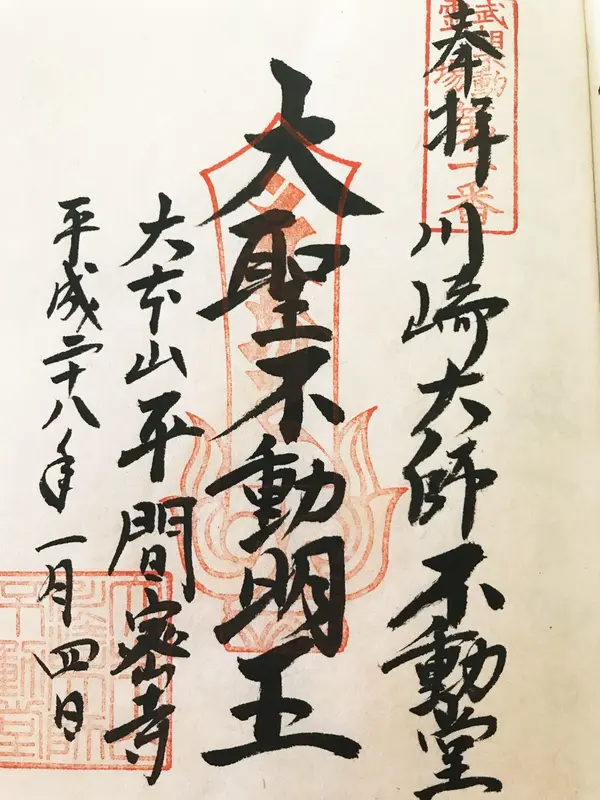 奉拝
武相不動
霊場第一番
川崎大師不動堂
大聖不動明王
大本山平間密寺
平成二十八年一月四日